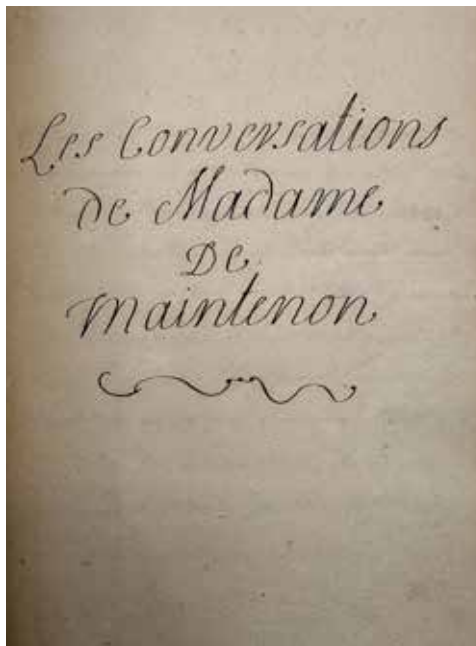 Les Conversations
de Madame
De
Maintenon